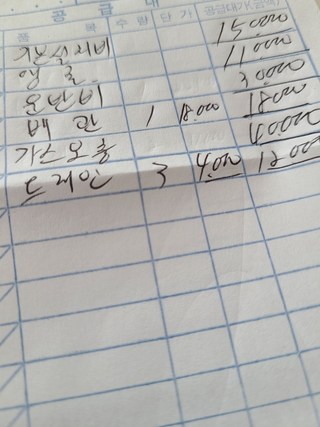 공 급 내
품 목 수 량 단 가 공급대가(금액)
기본설치비 150.000
앵글 110.000
운반비 30000
배관 1 18.000 18000
가스보충 40000
드레인 3 4.000 12.000